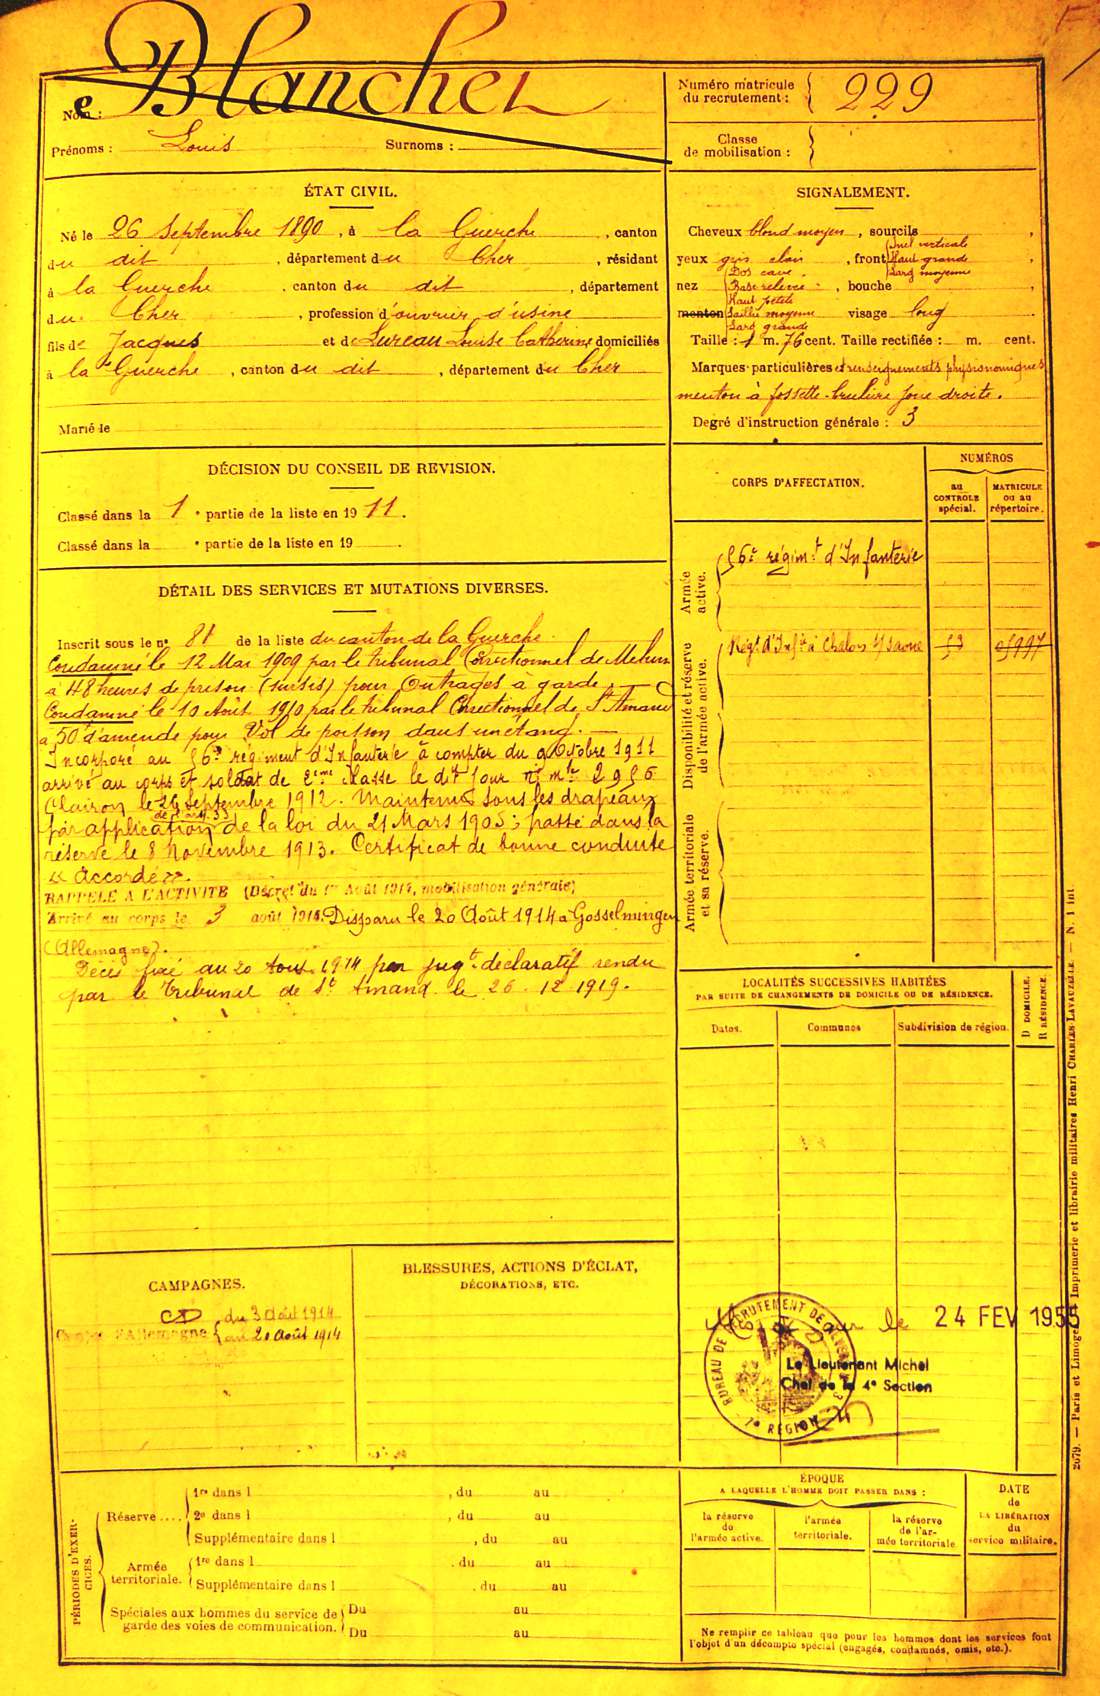 Nom : Blanchet
Prénoms : Louis Surnoms :
Numéro matricule
du recrutement : 229
Classe
de mobilisation :
ÉTAT CIVIL.
Né le 26 Septembre 1890, à la Guerche, canton
du dit, département du Cher, résidant
à la Guerche, canton du dit, département
du Cher, profession d'ouvrier d'usine
fils de Jacques et de Lureau Louise Catherine domiciliés
à la Guerche, canton du dit, département du Cher
Marié le
SIGNALEMENT.
Cheveux blond moyen, sourcils
yeux gris clair, front Incl verticale
Haut grande
Larg moyenne
nez Dos cave.
Base relevée, bouche
Haut petite
menton Saillie moyenne visage long
Larg grande
Taille : 1 m. 76 cent. Taille rectifiée : m. cent.
Marques particulières et renseignements physionomiques
menton à fossette - brulure joue droite.
Degré d'instruction générale : 3
DÉCISION DU CONSEIL DE REVISION.
Classé dans la 1e partie de la liste en 1911.
Classé dans la e partie de la liste en 19 .
DÉTAIL DES SERVICES ET MUTATIONS DIVERSES.
Inscrit sous le no 81 de la liste du canton de la Guerche.
Condamné le 12 Mai 1909 par le tribunal Correctionnel de
à 48 heures de prison (sursis) pour Outrages à garde.
Condamné le 10 Août 1910 par le tribunal Correctionnel de St Amand
à 50 d'amende pour Vol de poisson dans un étang.
Incorporé au 56e régiment d'Infanterie à compter du 9 Octobre 1911
arrivé au corps et soldat de 2eme classe le dit jour no mle 2956
Clairon le 26 Septembre 1912. Maintenu sous les drapeaux
par application de l'art. 33 de la loi du 21 Mars 1905; passé dans la
réserve le 8 Novembre 1913. Certificat de bonne conduite
« Accordé ».
RAPPELÉ A L'ACTIVITÉ (Décret du 1er Août 1914, mobilisation générale)
Arrivé au corps le 3 août 1914. Disparu le 20 Août 1914 à Gosselmingen
(Allemagne).
Décès fixé au 20 Aout 1914 par jugt déclaratif rendu
par le Tribunal de St Amand le 26-12 1919.
CORPS D'AFFECTATION.
NUMÉROS
au
CONTROLE
spécial.
MATRICULE
ou au
répertoire.
Armée
active.
56e régimt d'Infanterie
Disponibilité et réserve
de l'armée active.
Régt d'Infie à Chalon s/Saone
Armée territoriale
et sa réserve.
LOCALITÉS SUCCESSIVES HABITÉES
PAR SUITE DE CHANGEMENTS DE DOMICILE OU DE RÉSIDENCE.
Dates.
Communes
Subdivision de région.
D DOMICILE.
R RÉSIDENCE.
CAMPAGNES.
CD du 3 Août 1914
Contre l'Allemagne au 20 Août 1914
BLESSURES, ACTIONS D'ÉCLAT,
DÉCORATIONS, ETC.
le 24 FEV 1955
BUREAU DE RECRUTEMENT DE
7e RÉGION
Le Lieutenant Michel
Chef de la 4e Section
PÉRIODES D'EXERCICES.
Réserve....
1re dans l , du au
2e dans l , du au
Supplémentaire dans l , du au
Armée
territoriale.
1re dans l , du au
Supplémentaire dans l , du au
Spéciales aux hommes du service de
garde des voies de communication.
Du au
Du au
ÉPOQUE
A LAQUELLE L'HOMME DOIT PASSER DANS :
la réserve
de
l'armée active.
l'armée
territoriale.
la réserve
de l'ar-
mée territoriale
DATE
de
LA LIBÉRATION
du
service militaire.
Ne remplir ce tableau que pour les hommes dont les services font
l'objet d'un décompte spécial (engagés, condamnés, omis, etc.).
2679. — Paris et Limoges. Imprimerie et librairie militaires Henri CHARLES-LAVAUZELLE. — N. 1 int.